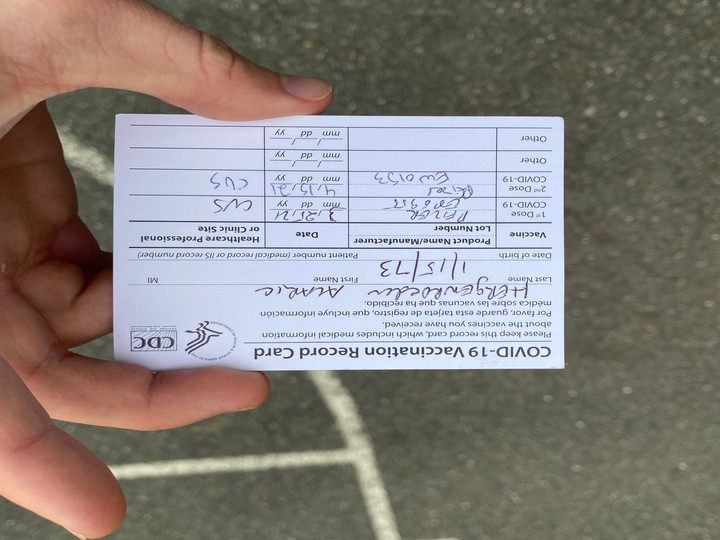 COVID-19 Vaccination Record Card
CDC
Please keep this record card, which includes medical information
about the vaccines you have received.
Por favor, guarde esta tarjeta de registro, que incluye información
médica sobre las vacunas que ha recibido.
Hergenroeder
Last Name First Name MI
1/15/73
Date of birth Patient number (medical record or IIS record number)
Vaccine Product Name/Manufacturer Lot Number Date Healthcare Professional or Clinic Site
1st Dose COVID-19 PFIZER 3,25,21 mm dd yy CVS
2nd Dose COVID-19 Pfizer EW0153 4,15,21 mm dd yy CVS
Other mm dd yy
Other mm dd yy